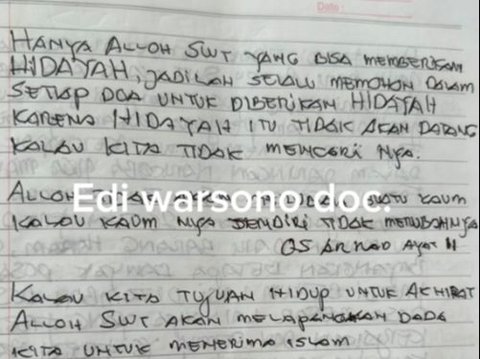 Date:
HANYA ALLOH SWT YANG BISA MEMBERIKAN
HIDAYAH, JADILAH SELALU MEMOHON DALAM
SETIAP DOA UNTUK DIBERIKAN HIDAYAH
KARENA HIDAYAH ITU TIDAK AKAN DATANG
KALAU KITA TIDAK MENCARI NYA.
ALLOH TIDAK AKAN SUATU KAUM
Edi warsono doc.
KALAU KAUM NYA SENDIRI TIDAK MERUBAHNYA
QS AR RAD AYAT 11
KALAU KITA TUJUAN HIDUP UNTUK AKHIRAT
ALLOH SWT AKAN MELAPANGKAN DADA
KITA UNTUK MENERIMA ISLAM